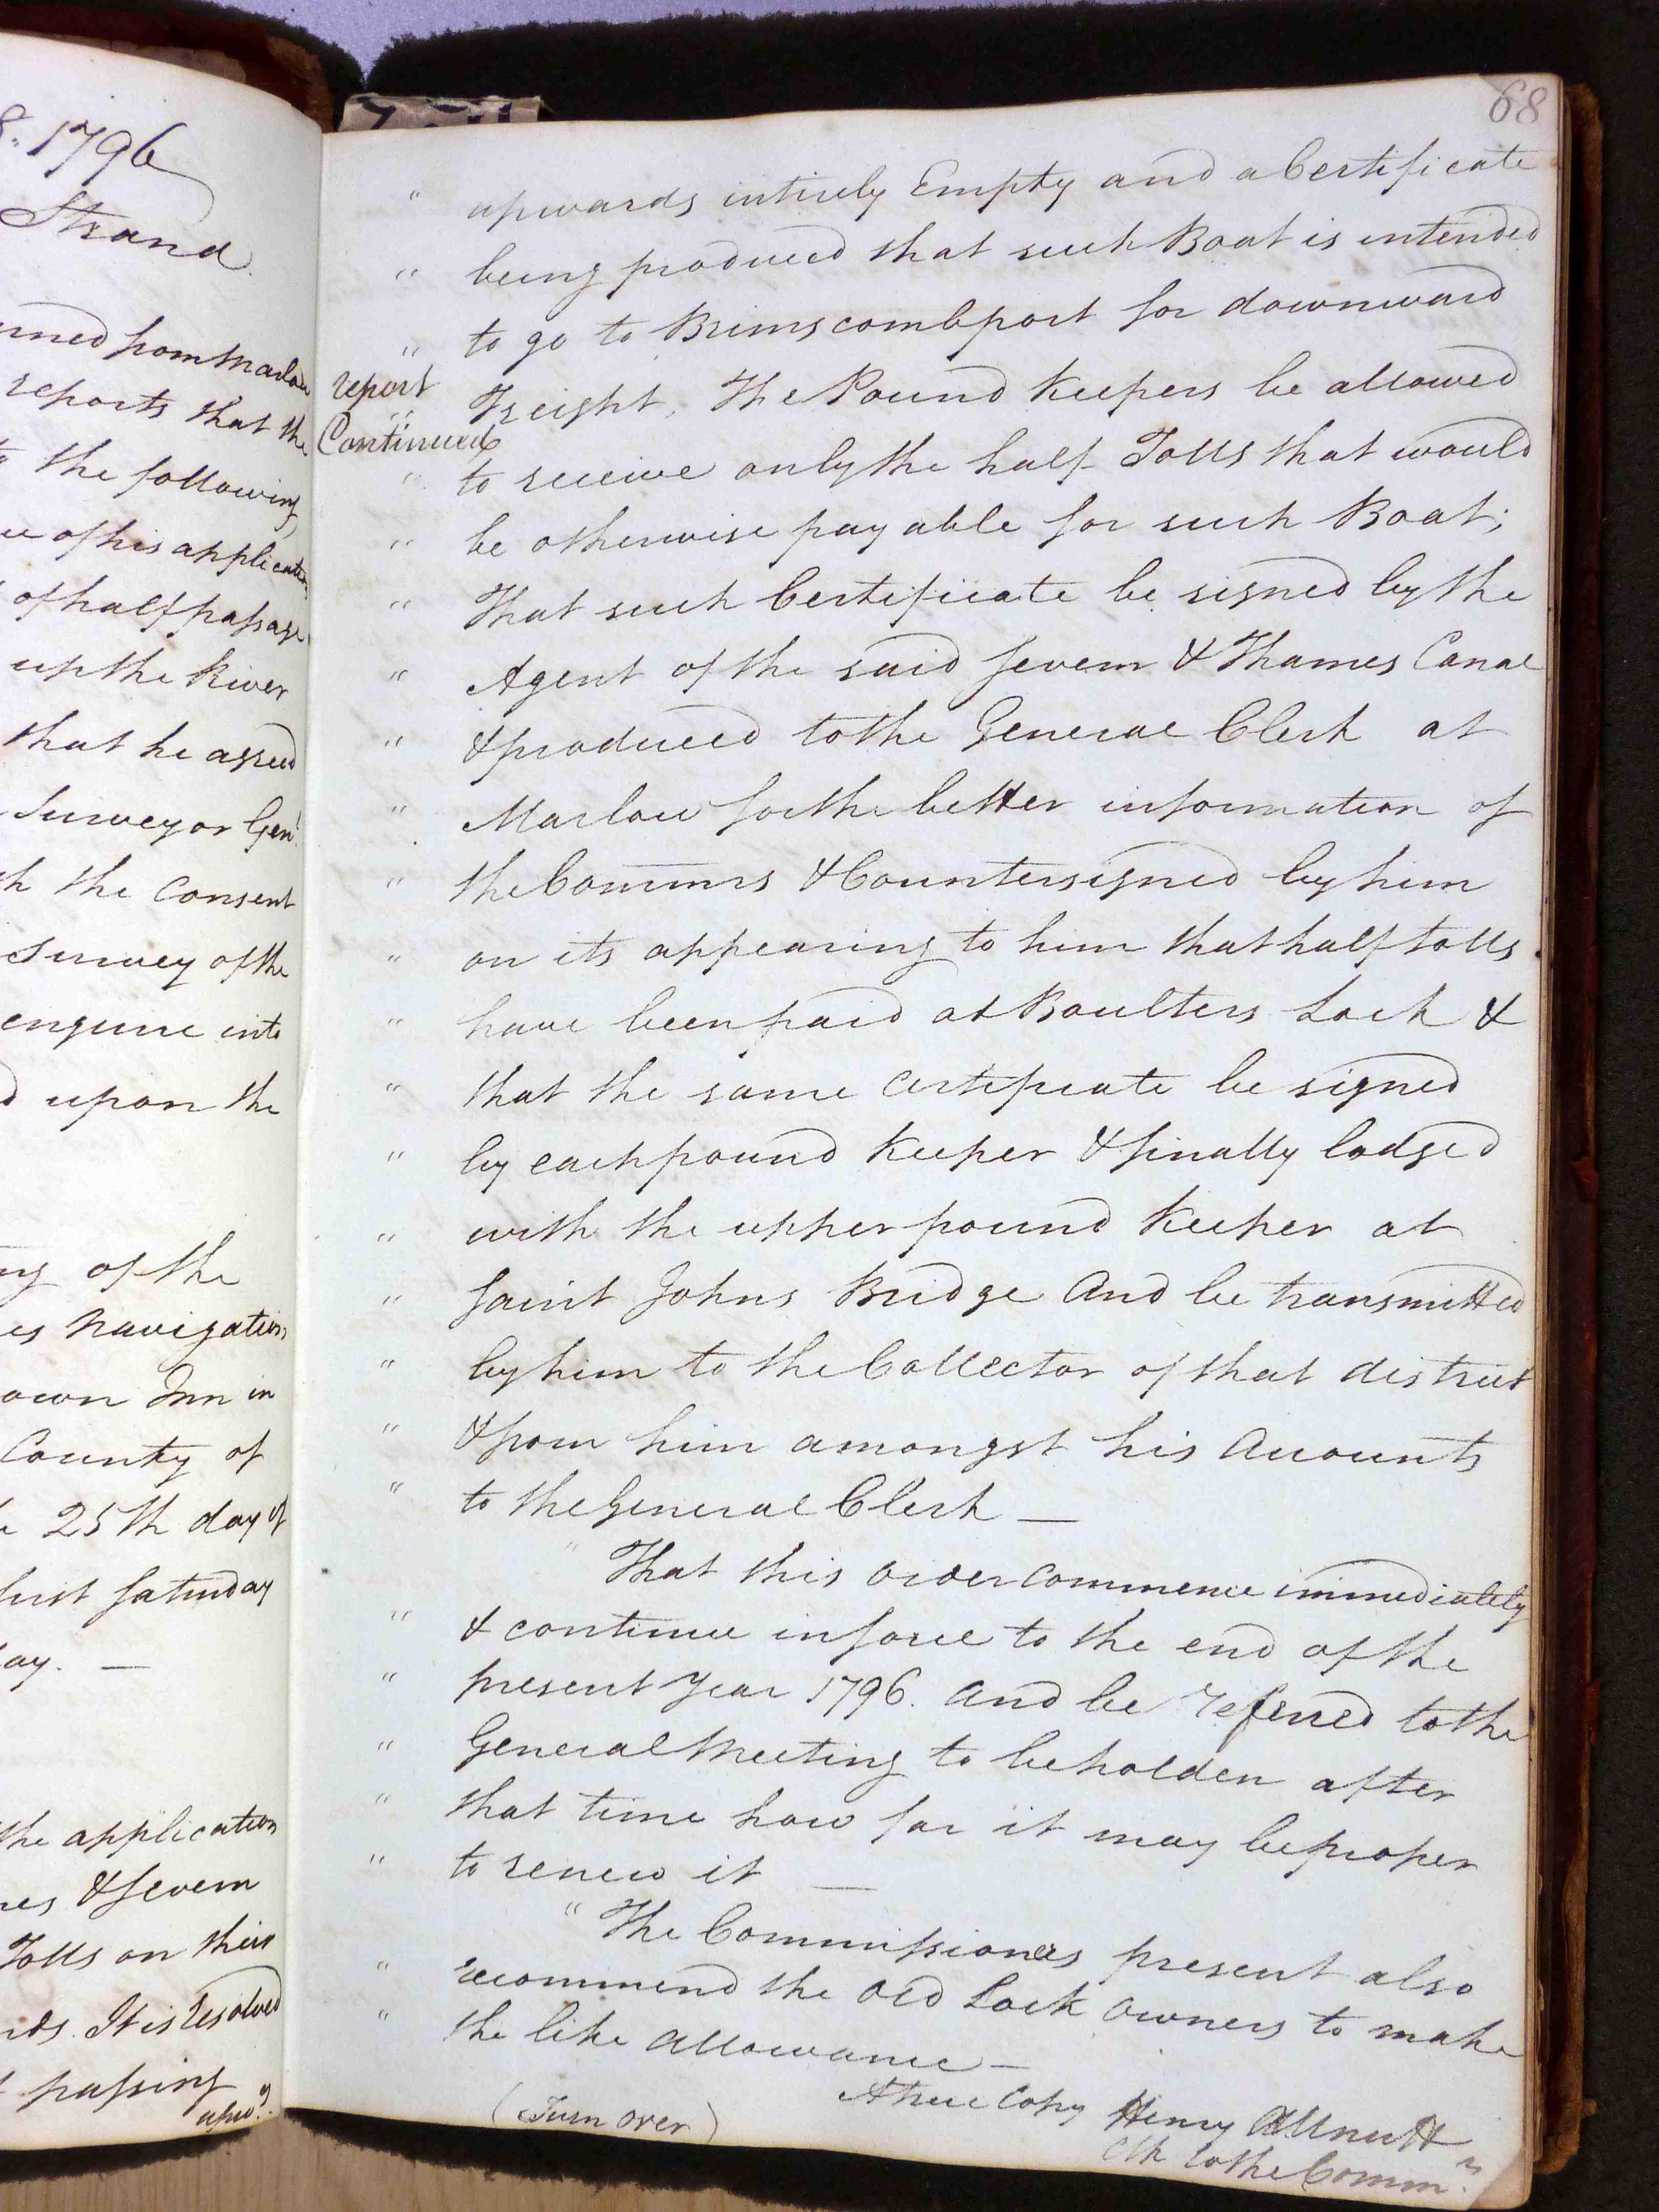 8. 1796
Strand.
rned from Marlow
reports that the
to the following
ce of his application
of half passage
up the River
that he agreed
Surveyor Genl.
th the Consent
survey of the
enquire into
d upon the
ng of the
es Navigation
own Inn in
County of
25th day of
first Saturday
ay. —
the application
mes & Severn
Tolls on their
It is Resolved
passing
upwd.
68
" upwards intirely Empty and a Certificate
" being produced that such Boat is intended
" to go to Brimscombport for downward
report
Continued
" Freight, The Pound Keepers be allowed
" to receive only the half Tolls that would
" be otherwise payable for such Boat;
" That such Certificate be signed by the
" Agent of the said Severn & Thames Canal
" & produced to the General Clerk at
" Marlow for the better information of
" the Commrs & Countersigned by him
" on its appearing to him that half tolls
" have been paid at Boulters Lock &
" that the same Certificate be signed
" by each pound Keeper & finally lodged
" with the upper pound Keeper at
" Saint Johns Bridge And be transmitted
" by him to the Collector of that district
" & from him amongst his Accounts
" to the General Clerk —
" That this order Commence immediately
" & continue in force to the end of the
" present Year 1796. and be referred to the
" General Meeting to be holden after
" that time how far it may be proper
" to renew it —
" The Commissioners present also
" recommend the Old Lock Owners to make
" the like Allowance —
A true Copy Henry Allnutt
Clk to the Commrs.
(Turn over)